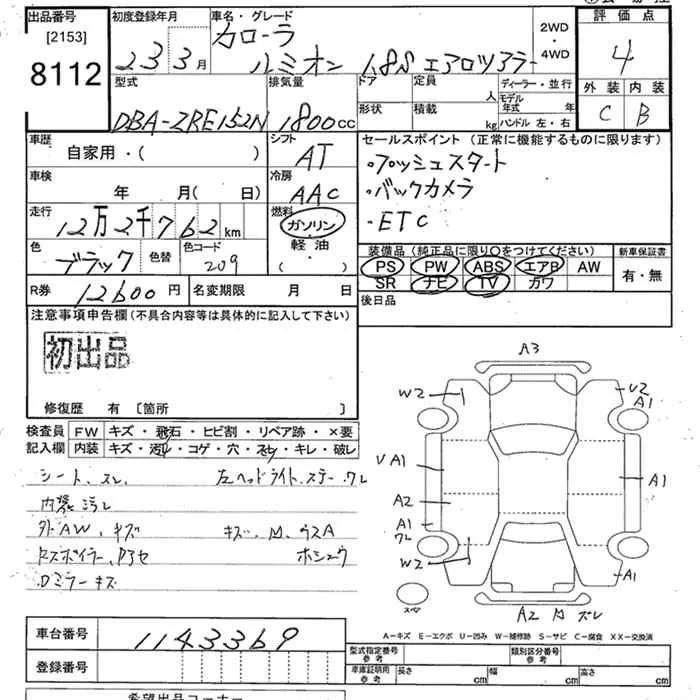 出品番号
[2153]
8112
初度登録年月
23 3月
車名・グレード
カローラ
ルミオン 1.8S エアロツアラー
2WD
・
4WD
評価点
4
外装 内装
C B
型式
DBA-ZRE152N
排気量
1800cc
ドア
形状
定員
人
積載
kg
ディーラー・並行
モデル年式 年
ハンドル 左・右
車歴
自家用・( )
シフト
AT
車検
年 月( 日)
冷房
AAC
走行
12万2千762km
燃料
ガソリン
軽油・
( )
色
ブラック
色替
色コード
209
セールスポイント (正常に機能するものに限ります)
・プッシュスタート
・バックカメラ
・ETC
装備品 (純正品に限り○をつけてください)
PS PW ABS エアB AW
SR ナビ TV カワ
新車保証書
有・無
R券 12600円
名変期限 月 日
後日品
注意事項申告欄 (不具合内容等は具体的に記入して下さい)
初出品
修復歴 有 〔箇所 〕
検査員
記入欄
FW キズ・飛石・ヒビ割・リペア跡・×要
内装 キズ・汚レ・コゲ・穴・スレ・キレ・破レ
シート、スレ 左ヘッドライト、ステー ワレ
内装 汚レ
外AW、キズ
Dミラーキズ
ホシュウ
A3
W2
U2
A1
A1
A1
A2
A1
ワレ
W2
A1
スペア
A2
ズレ
A-キズ E-エクボ U-凹み W-補修跡 S-サビ C-腐食 XX-交換済
車台番号
1143369
登録番号
型式指定番号
参考
類別区分番号
参考
車庫証明用
参考
長さ cm
幅 cm
高さ cm
希望出品コーナー